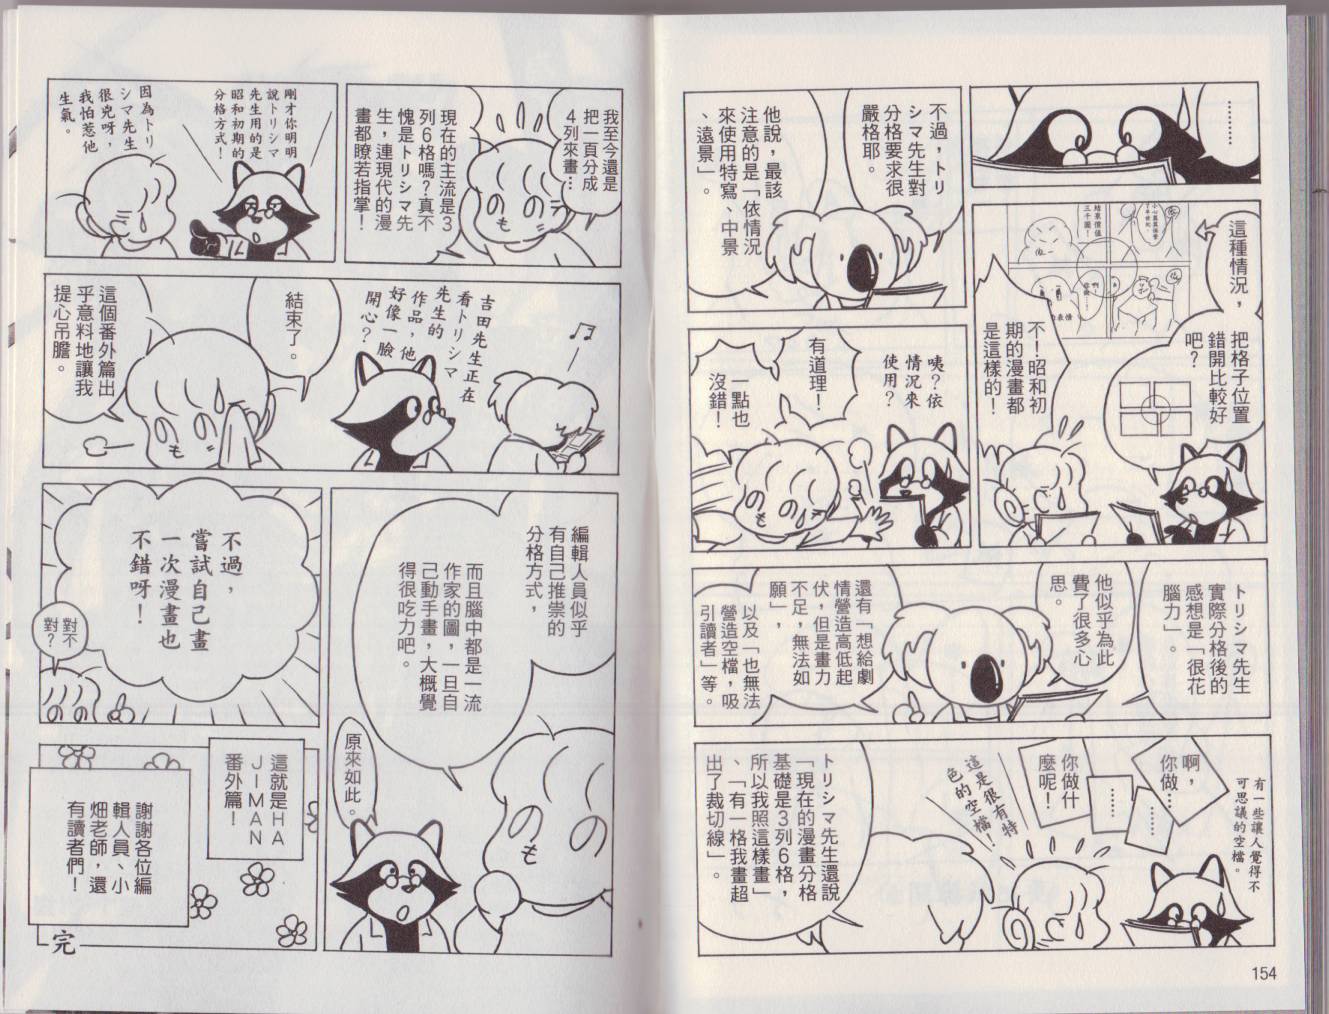 ………
這種情況，
把格子位置
錯開比較好
吧？
不！昭和初
期的漫畫都
是這樣的！
不過，トリ
シマ先生對
分格要求很
嚴格耶。
他說，最該
注意的是「依情況
來使用特寫、中景
、遠景」。
咦？依
情況來
使用？
有道理！
一點也
沒錯！
トリシマ先生
實際分格後的
感想是「很花
腦力」。
他似乎為此
費了很多心
思。
還有「想給劇
情營造高低起
伏，但是畫力
不足，無法如
願」，
以及「也無法
營造空檔，吸
引讀者」等。
有一些讓人覺得不
可思議的空檔。
啊，
你做…
……
……
你做什
麼呢！
這是很有特
色的空檔！
トリシマ先生還說
「現在的漫畫分格
基礎是3列6格，
所以我照這樣畫」
、「有一格我畫超
出了裁切線」。
154
我至今還是
把一頁分成
4列來畫…
現在的主流是3
列6格嗎？真不
愧是トリシマ先
生，連現代的漫
畫都瞭若指掌！
剛才你明明
說トリシマ
先生用的是
昭和初期的
分格方式！
因為トリ
シマ先生
很兇呀，
我怕惹他
生氣。
吉田先生正在
看トリシマ
先生的
作品，他
好像一臉
開心？
結束了。
這個番外篇出
乎意料地讓我
提心吊膽。
編輯人員似乎
有自己推崇的
分格方式，
而且腦中都是一流
作家的圖，一旦自
己動手畫，大概覺
得很吃力吧。
原來如此。
不過，
嘗試自己畫
一次漫畫也
不錯呀！
對不
對？
這就是HA
JIMAN
番外篇！
謝謝各位編
輯人員、小
畑老師，還
有讀者們！
完